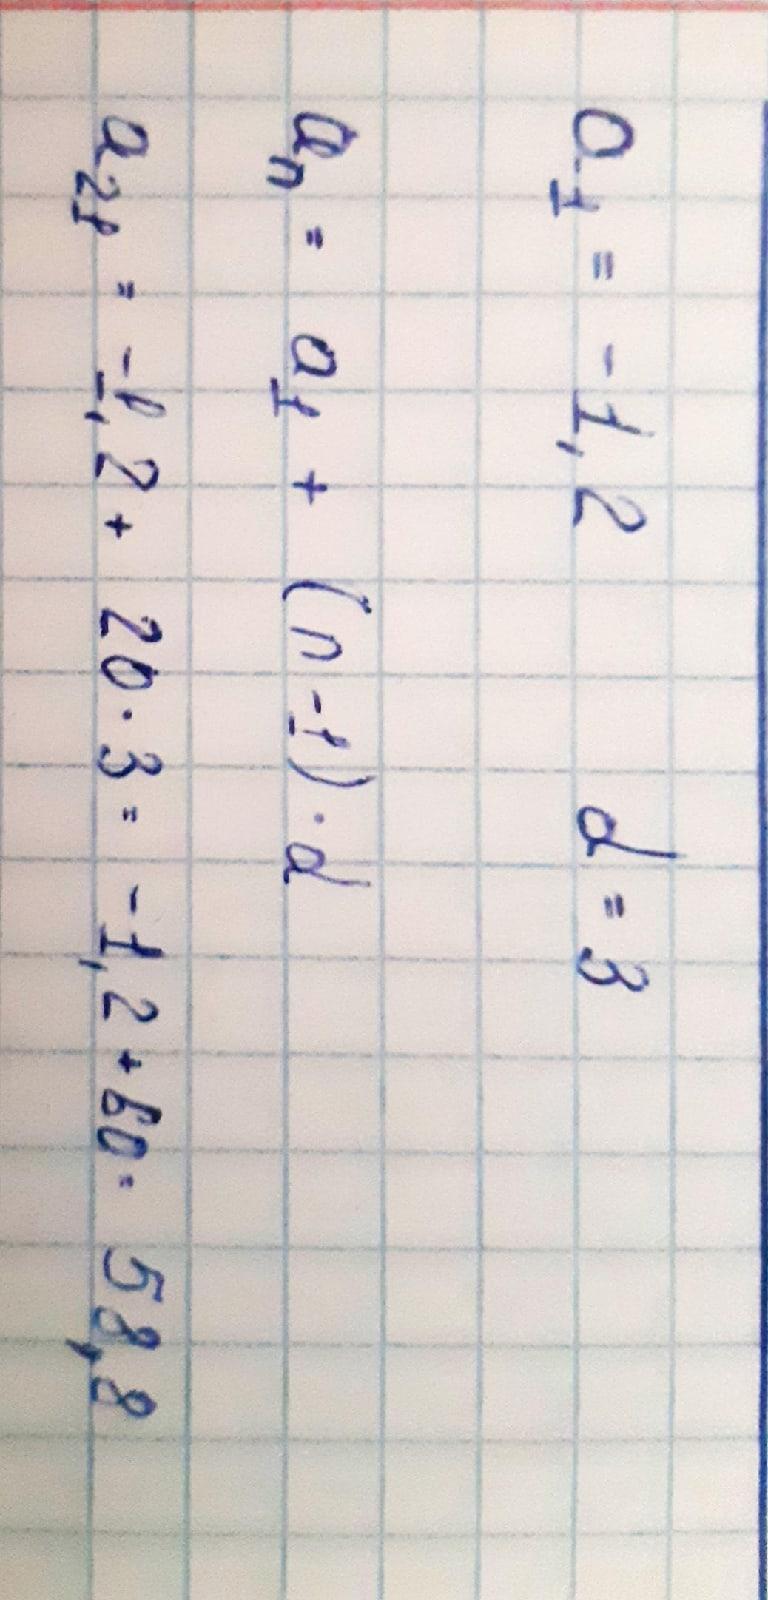 a₁ = -1,2 d = 3
aₙ = a₁ + (n-1)·d
a₂₁ = -1,2 + 20·3 = -1,2 + 60 = 58,8